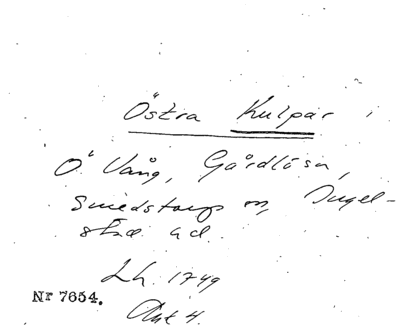 Östra Kulpar
Ö Vång, Gårdlösa,
Smedstorp sn, Ingel-
stad hd.
Lh. 1749
Akt 4.
Nr 7654.